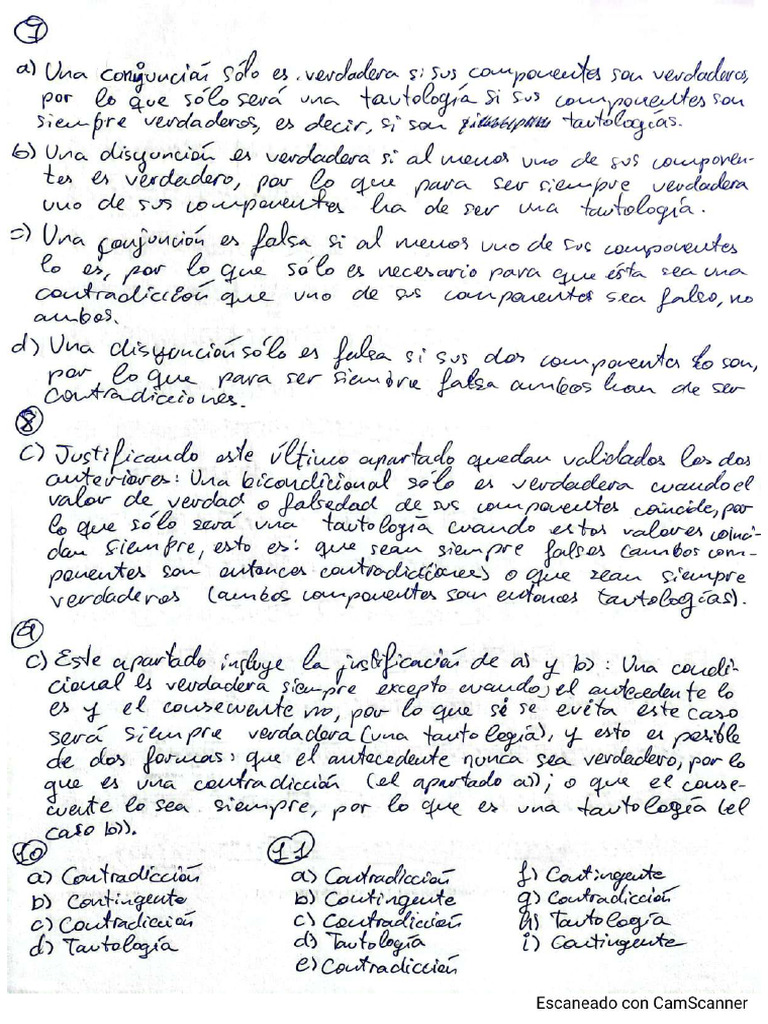 7
a) Una conjunción sólo es verdadera si sus componentes son verdaderos,
por lo que sólo será una tautología si sus componentes son
siempre verdaderos, es decir, si son tautologías.
b) Una disyunción es verdadera si al menos uno de sus componen-
tes es verdadero, por lo que para ser siempre verdadera
uno de sus componentes ha de ser una tautología.
c) Una conjunción es falsa si al menos uno de sus componentes
lo es, por lo que sólo es necesario para que ésta sea una
contradicción que uno de sus componentes sea falso, no
ambos.
d) Una disyunción sólo es falsa si sus dos componentes lo son,
por lo que para ser siempre falsa ambos han de ser
contradicciones.
8
c) Justificando este último apartado quedan validados los dos
anteriores: Una bicondicional sólo es verdadera cuando el
valor de verdad o falsedad de sus componentes coincide, por
lo que sólo será una tautología cuando estos valores coinci-
dan siempre, esto es: que sean siempre falsos (ambos com-
ponentes son entonces contradicciones) o que sean siempre
verdaderos (ambos componentes son entonces tautologías).
9
c) Este apartado incluye la justificación de a) y b): Una condi-
cional es verdadera siempre excepto cuando el antecedente lo
es y el consecuente no, por lo que si se evita este caso
será siempre verdadera (una tautología), y esto es posible
de dos formas: que el antecedente nunca sea verdadero, por lo
que es una contradicción (el apartado a)); o que el conse-
cuente lo sea siempre, por lo que es una tautología (el
caso b)).
10
a) Contradicción
b) Contingente
c) Contradicción
d) Tautología
11
a) Contradicción
b) Contingente
c) Contradicción
d) Tautología
e) Contradicción
f) Contingente
g) Contradicción
h) Tautología
i) Contingente
Escaneado con CamScanner